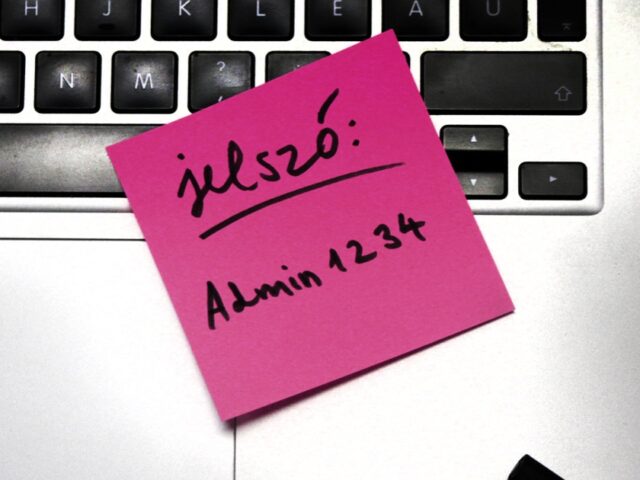 H J K L É Á Ű
N M ?
jelszó:
Admin 1234